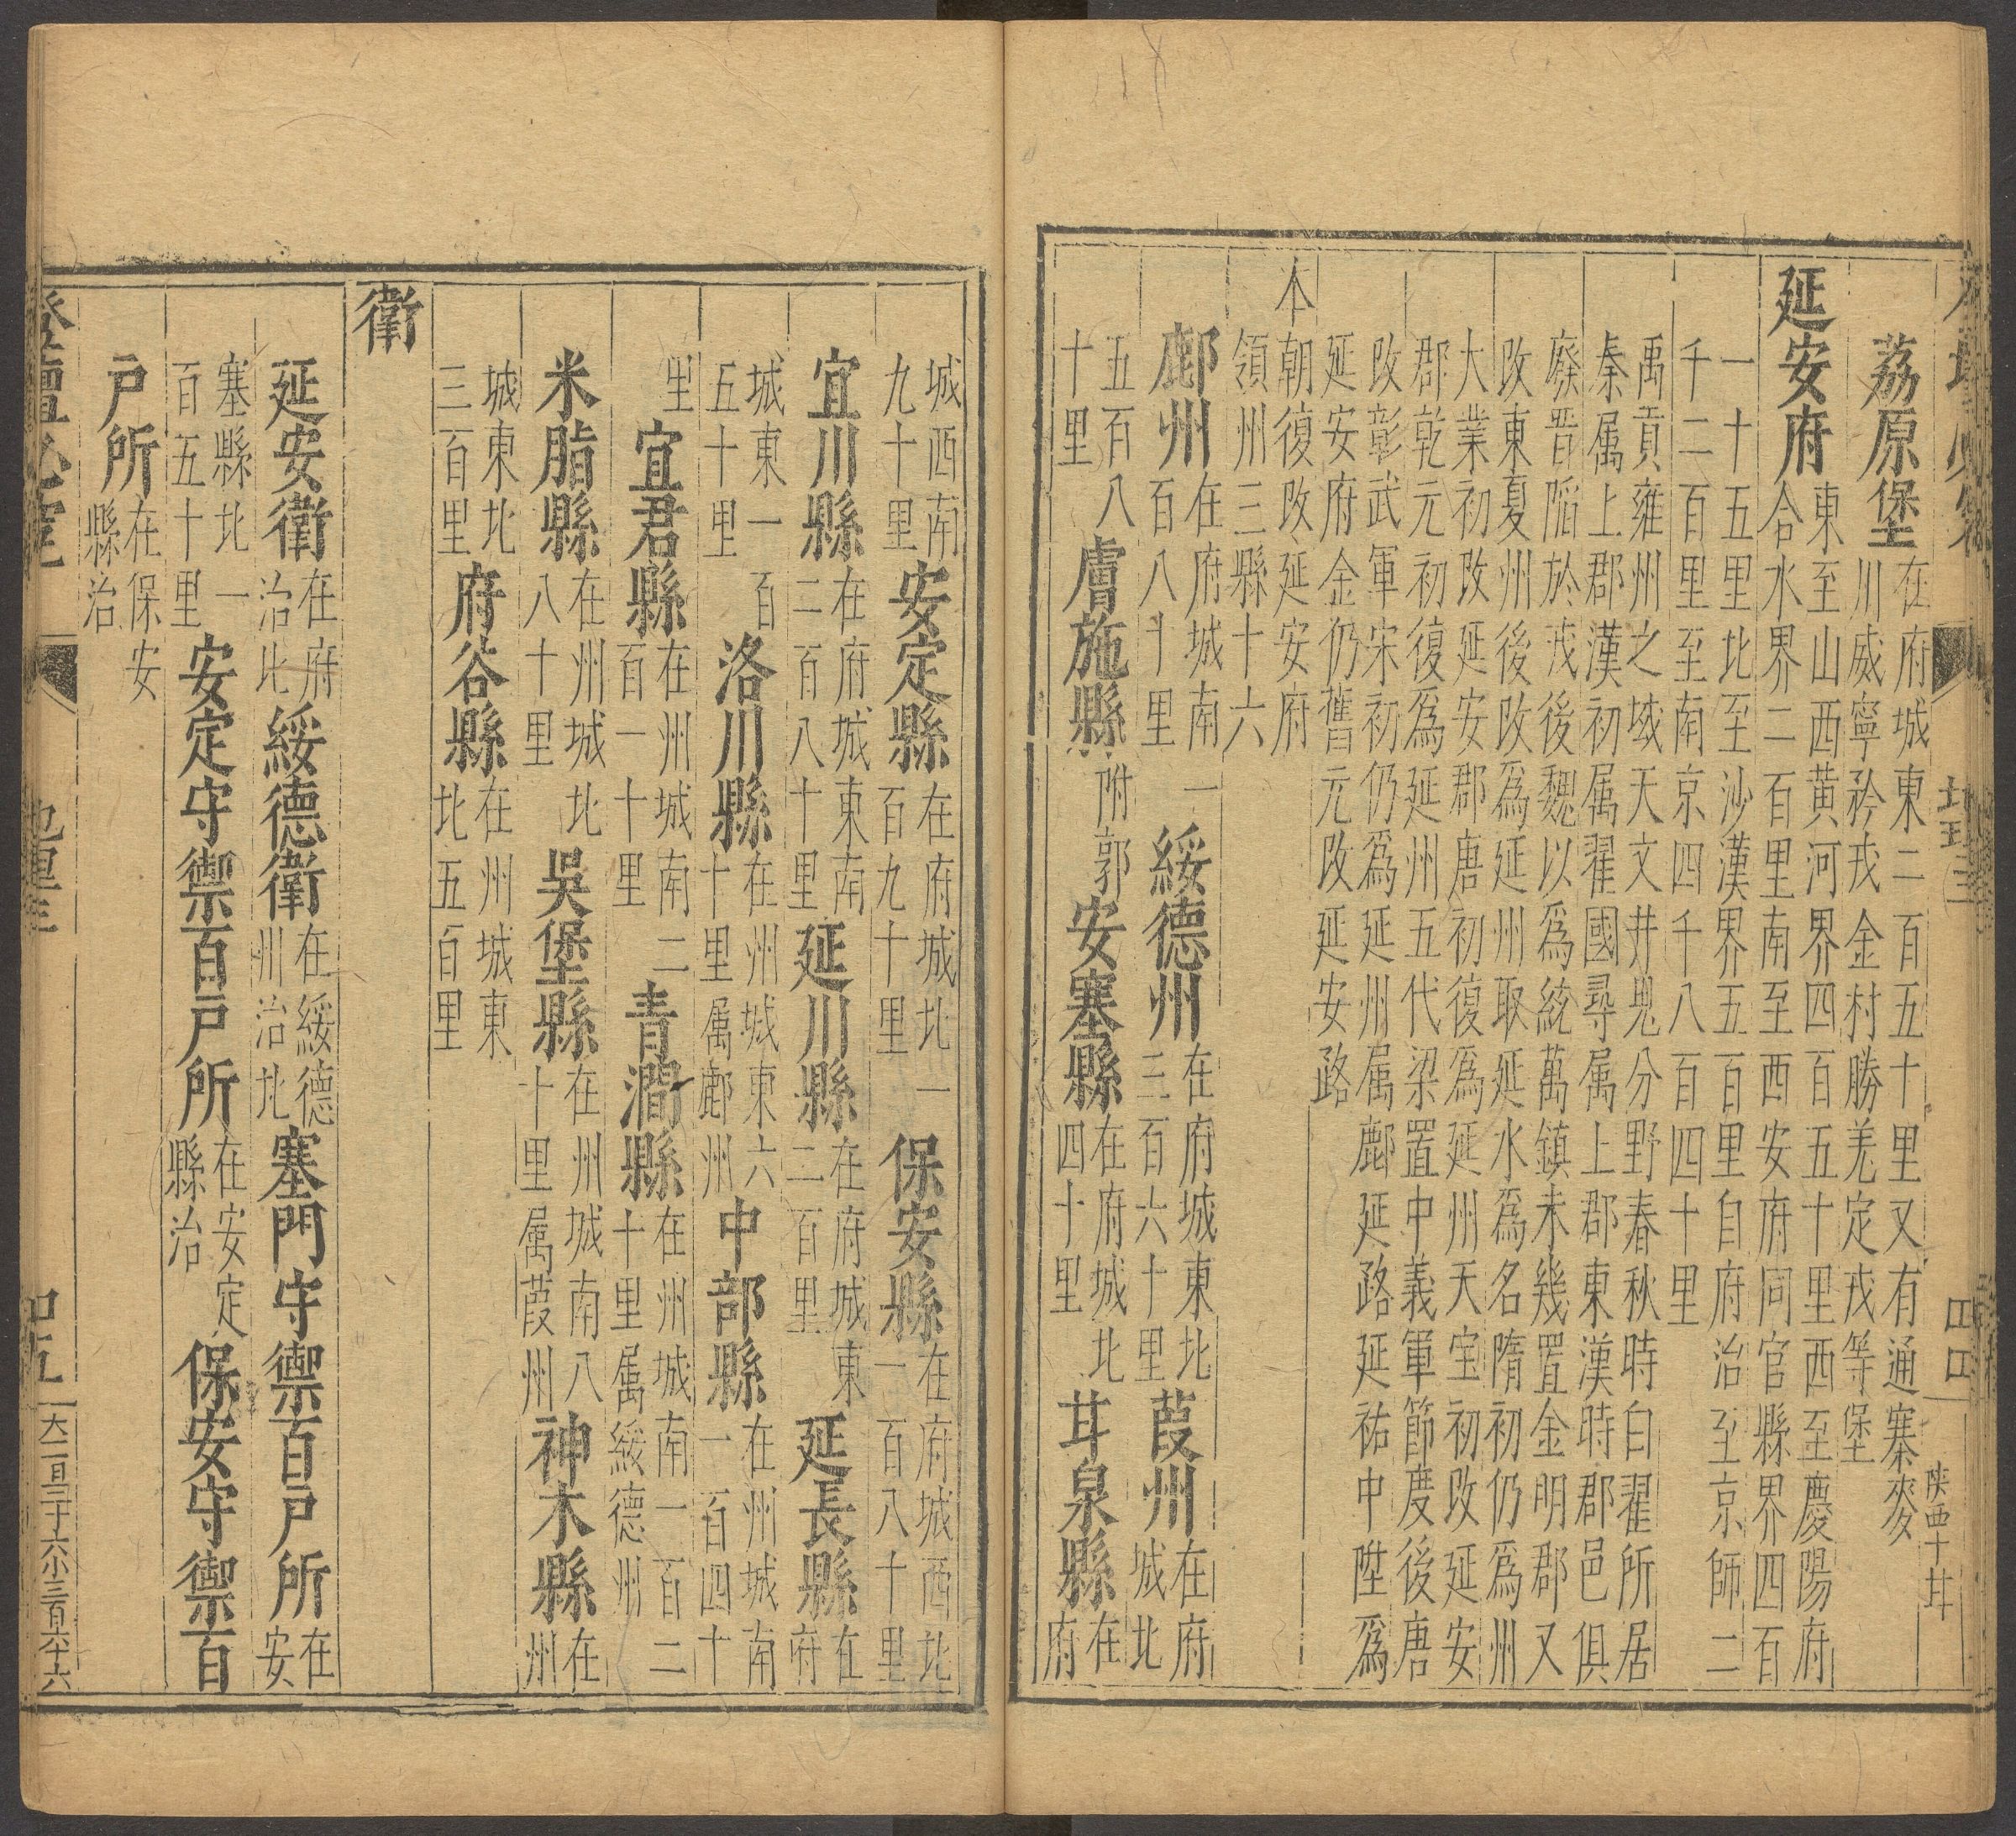 荔原堡在府城東二百五十里又有通塞麥
川威寧矜戎金村勝羌定戎等堡
延安府東至山西黃河界四百五十里西至慶陽府
合水界二百里南至西安府同官縣界四百
一十五里北至沙漠界五百里自府治至京師二
千二百里至南京四千八百四十里
禹貢雍州之域天文井鬼分野春秋時白翟所居
秦属上郡漢初属翟國尋属上郡東漢時郡邑俱
廢晋陷於戎後魏以爲統萬鎮未幾置金明郡又
改東夏州後改爲延州取延水爲名隋初仍爲州
大業初改延安郡唐初復爲延州天宝初改延安
郡乾元初復爲延州五代梁置中義軍節度後唐
改彰武軍宋初仍爲延州属鄜延路延祐中陞爲
延安府金仍舊元改延安路
本朝復改延安府
領州三縣十六
鄜州在府城南一百八十里綏德州在府城東北三百六十里葭州在府城北
五百八十里膚施縣附郭安塞縣在府城北四十里甘泉縣在府
城西南九十里安定縣在府城北一百九十里保安縣在府城西北一百八十里
宜川縣在府城東南二百八十里延川縣在府城東二百里延長縣在府
城東一百五十里洛川縣在州城東六十里属鄜州中部縣在州城南一百四十
里宜君縣在州城南二百一十里青澗縣在州城南一百二十里属綏德州
米脂縣在州城北八十里吳堡縣在州城南八十里属葭州神木縣在州
城東北三百里府谷縣在州城東北五百里
衛
延安衛在府治北綏德衛在綏德州治北塞門守禦百戶所在安
塞縣北一百五十里安定守禦百戶所在安定縣治保安守禦百
戶所在保安縣治